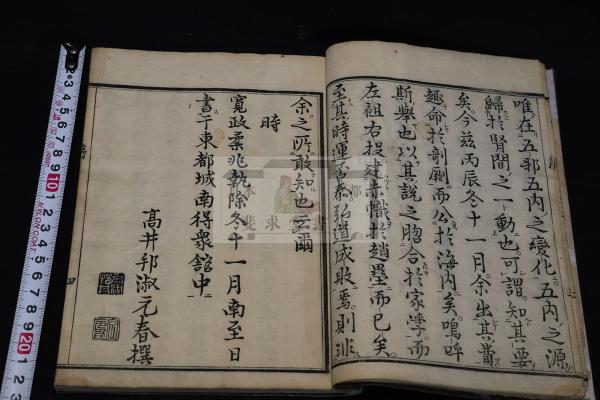 唯在五邪五内之變化五内之源
歸於腎間之一動也可謂知其要
矣今茲丙辰冬十一月余出其貲
趣命於剞劂而公於海内矣嗚呼
斯舉也以其說之脗合於家學而
左袒右提建赤幟於趙壘而已矣
至其時運否泰弘道成敗焉則非
余之所敢知也云爾
時
寛政柔兆執除冬十一月南至日
書于東都城南得衆舘中
髙井邦淑元春撰